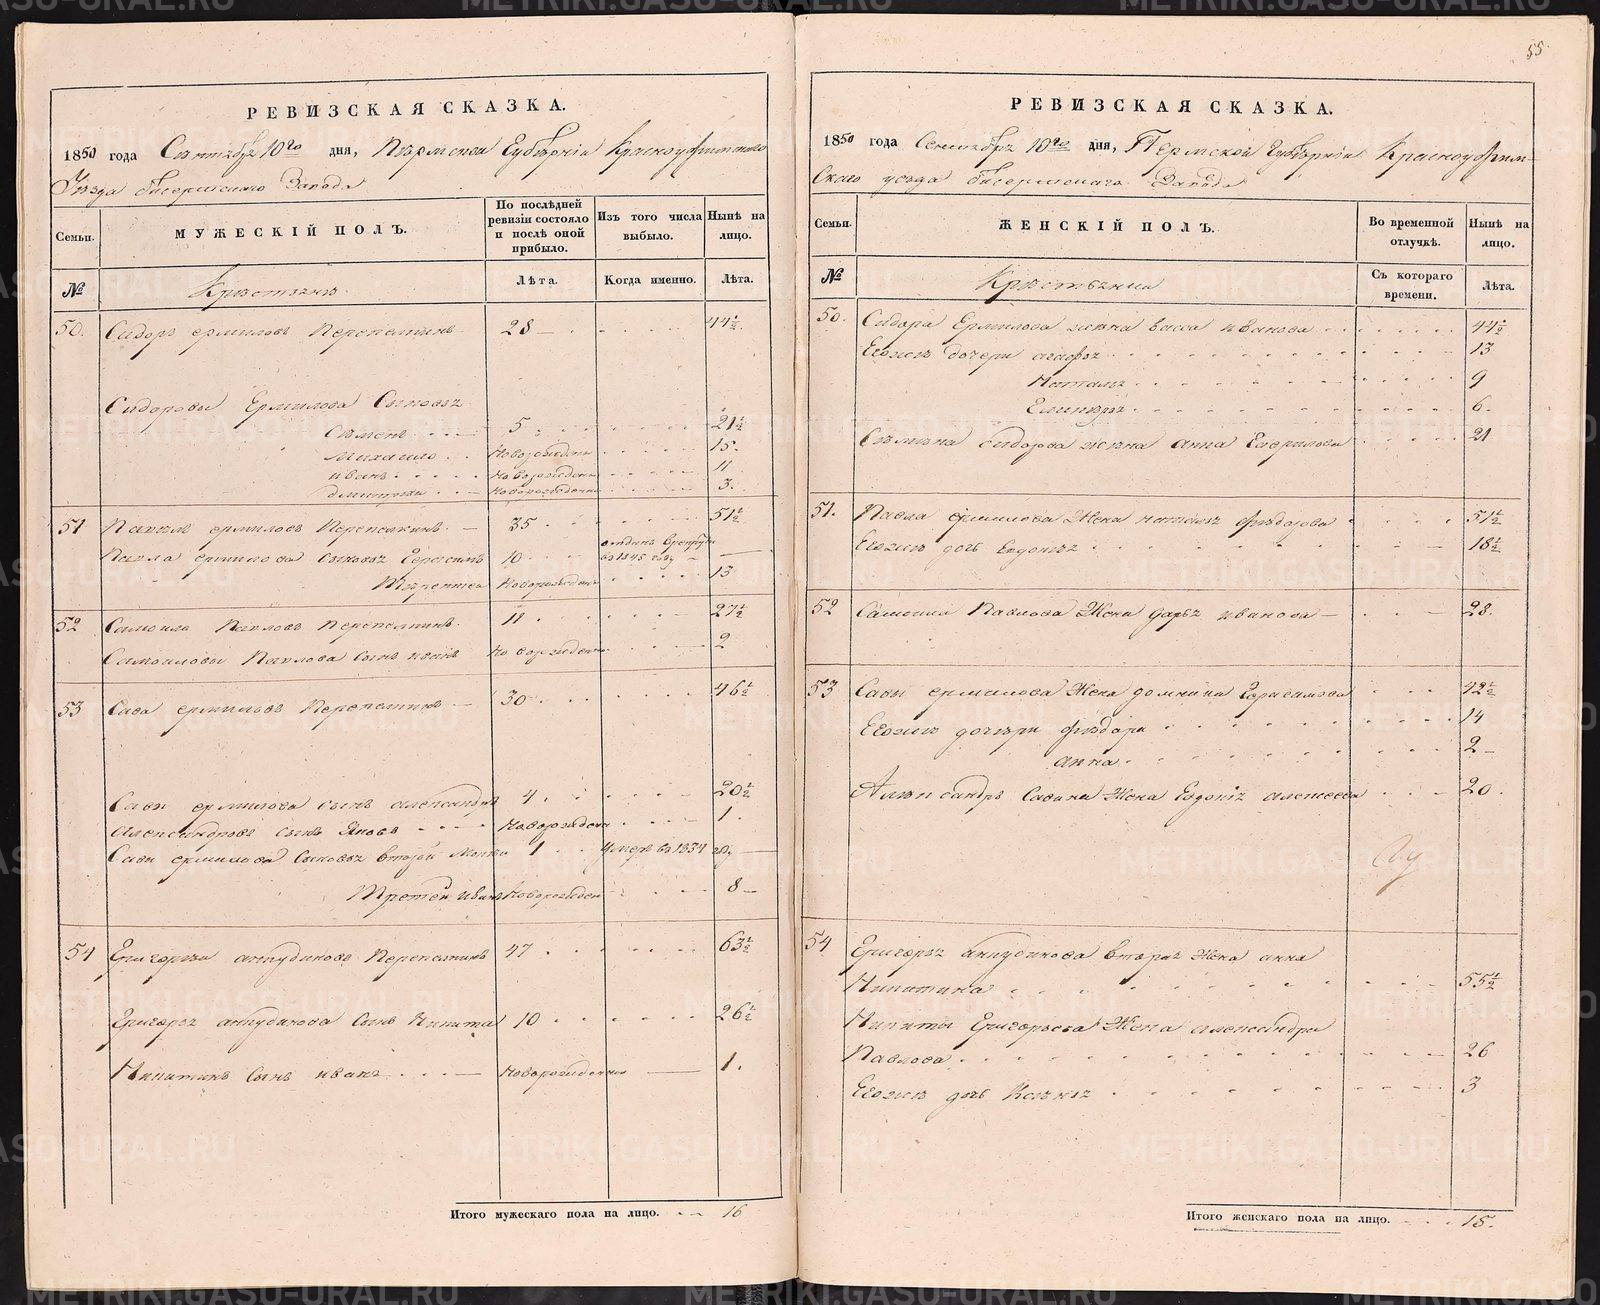 55.
РЕВИЗСКАЯ СКАЗКА.
1850 года Сентября 10го дня, Пермской Губернiи Красноуфимскаго
Уѣзда бисерскаго Завода
Семьи.
МУЖЕСКІЙ ПОЛЪ.
По послѣдней ревизіи состояло и послѣ оной прибыло.
Изъ того числа выбыло.
Нынѣ на лицо.
№
Крестьяне
Лѣта.
Когда именно.
Лѣта.
50. Сидоръ ермиловъ Перепелкинъ 28 44½
Сидоровы Ермилова Сыновья
Семенъ 5 21½
Михаило Новорожденъ 15.
иванъ Новорожденъ 11
дмитрей Новорожденъ 3.
51 Павелъ ермиловъ Перепелкинъ 35 51½
Павла ермилова сыновья Герасимъ 10 отданъ врекруты во 1845 году
Терентей Новорожденъ 13
52 Самоила Павловъ Перепелкинъ 11 27½
Самоиловы Павлова сынъ иванъ Новорожденъ 2
53 Сава ермиловъ Перепелкинъ 30 46½
Савы ермилова сынъ александръ 4 20½
александровъ сынъ Яковъ Новорожденъ 1.
Савы ермилова сыновья второй 1 умеръ во 1834 году
Третей иванъ Новорожденъ 8
54 Григорьи анкудиновъ Перепелкинъ 47 63½
Григорья анкудинова сынъ Никита 10 26½
Никитинъ сынъ иванъ Новорожденны 1.
Итого мужескаго пола на лицо. 16
РЕВИЗСКАЯ СКАЗКА.
1850 года Сентября 10го дня, Пермской Губернiи Красноуфим-
скаго уѣзда бисерскаго Завода
Семьи.
ЖЕНСКІЙ ПОЛЪ.
Во временной отлучкѣ.
Нынѣ на лицо.
№
Крестьянки
Съ котораго времени.
Лѣта.
50. Сидора Ермилова жена васса иванова 44½
Егожъ дочери агафья 13
Наталья 9
6.
Семена сидорова жена анна Гаврилова 21
51. Павла ермилова Жена наталья федорова 51½
Егожъ дочь Евдокея 18½
52 Самоила Павлова Жена дарья иванова 28.
53 Савы ермилова Жена домнина Герасимова 42½
Егожъ дочери федора 14
анна 2
Александръ Савина Жена Евдокiя алексеева 20.
54 Григорья анкудинова вторая Жена анна
Никитина 55½
Никиты Григорьева Жена александра
Павлова 26
Егожъ дочь Ксенья 3
Итого женскаго пола на лицо. 15.
METRIKI.GASO-URAL.RU